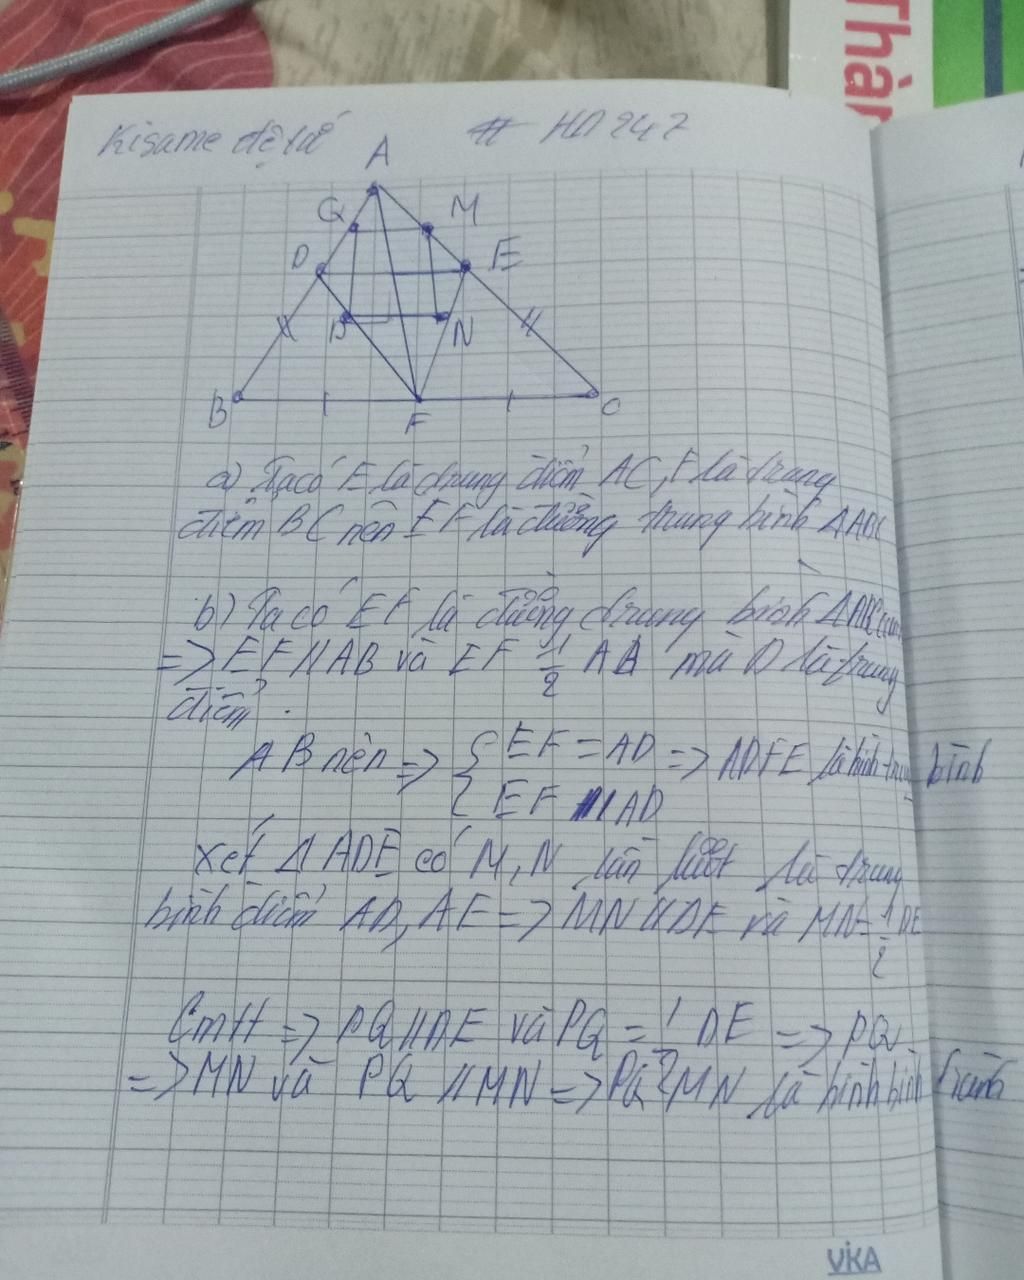 Thàn
Kisame đệ tử # HD 247
A
Q M
D E
P N
B F C
a) Ta có E là trung điểm AC, F là trung
điểm BC nên EF là đường trung bình ΔABC
b) Ta có EF là đường trung bình ΔABC
=> EF // AB và EF 1/2 AB mà D là trung
điểm.
AB nên => { EF = AD => ADFE là hình trung bình
EF // AD
xét Δ ADE có M, N lần lượt là trung
bình điểm AD, AE => MN // DE và MN = 1/2 DE
CmH => PQ // DE và PQ = 1/2 DE => PQ
=> MN và PQ // MN => PQMN là hình bình hành
VIKA